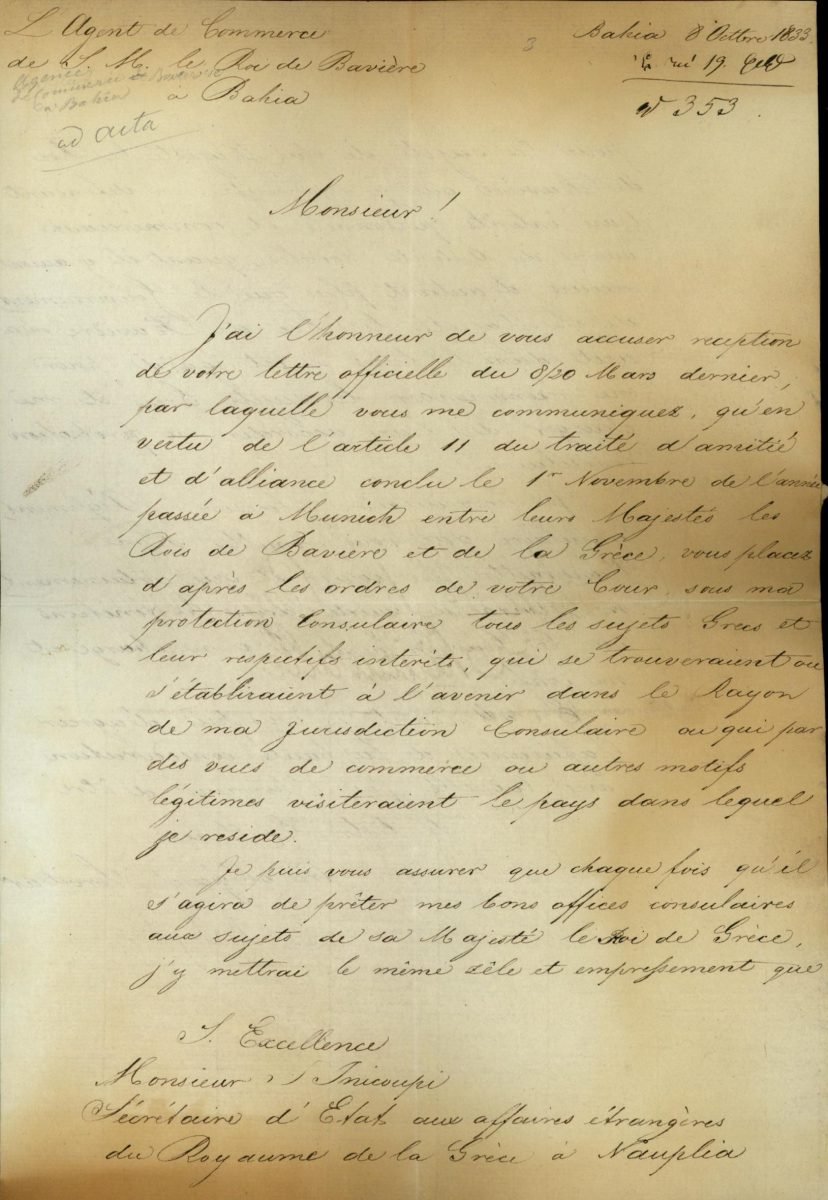 L'Agent de Commerce
de S. M. le Roi de Bavière
à Bahia
Agence
de Commerce de Bavière
à Bahia
ad acta
3
Bahia 8 Octbre 1833
19.
353
Monsieur!
J'ai l'honneur de vous accuser reception
de votre lettre officielle du 8/20 Mars dernier,
par laquelle vous me communiquez, qu'en
vertu de l'article 11 du traité d'amitié
et d'alliance conclu le 1r Novembre de l'année
passée à Munich entre leurs Majestés les
Rois de Bavière et de la Grèce, vous placez
d'après les ordres de votre Cour, sous ma
protection Consulaire tous les sujets Grecs et
leur respectifs interêts, qui se trouveraient ou
s'établiraient à l'avenir dans le Rayon
de ma jurisdiction Consulaire ou qui par
des vues de commerce ou autres motifs
légitimes visiteraient le pays dans lequel
je reside.
Je puis vous assurer que chaque fois qu'il
s'agira de prêter mes bons offices consulaires
aux sujets de sa Majesté le Roi de Grèce,
j'y mettrai le même zêle et empressement que
S. Excellence
Monsieur Tricoupi
Sécrétaire d'Etat aux affaires étrangères
du Royaume de la Grèce à Nauplia